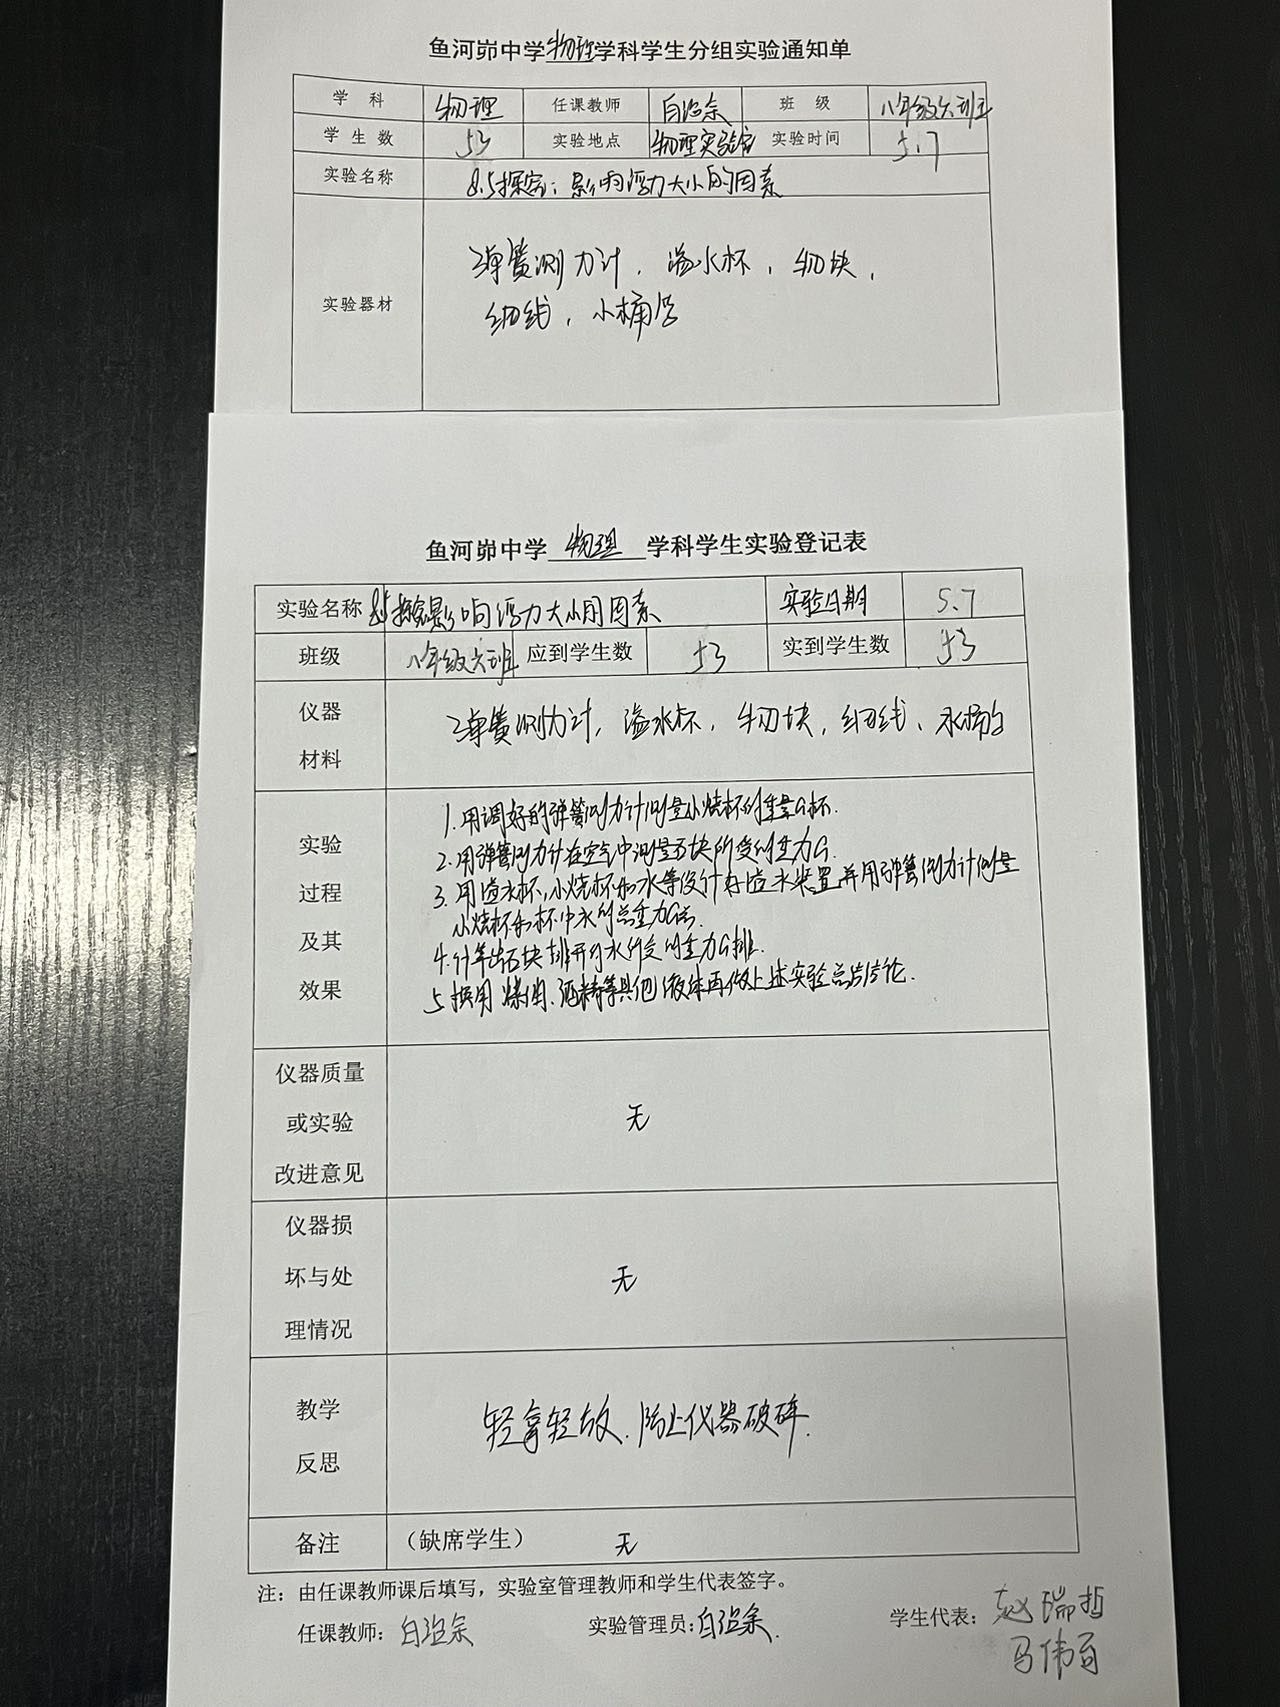 鱼河峁中学物理学科学生分组实验通知单
学科 物理 任课教师 白治余 班级 八年级六班
学生数 53 实验地点 物理实验室 实验时间 5.7
实验名称 8.5探究:影响浮力大小的因素
实验器材 弹簧测力计,溢水杯,物块,
细线,小桶等
鱼河峁中学 物理 学科学生实验登记表
实验名称 8.5探究影响浮力大小的因素 实验日期 5.7
班级 八年级六班 应到学生数 53 实到学生数 53
仪器材料 弹簧测力计,溢水杯,物块,细线、水桶
实验过程及其效果
1.用调好的弹簧测力计测量小烧杯的重量G杯.
2.用弹簧测力计在空气中测量石块所受的重力G.
3.用溢水杯,小烧杯和水等设计好溢水装置并用弹簧测力计测量
小烧杯和杯中水的总重力G总.
4.计算出石块排开的水所受的重力G排.
5.换用煤油、酒精等其他液体再做上述实验总结结论.
仪器质量或实验改进意见 无
仪器损坏与处理情况 无
教学反思 轻拿轻放、防止仪器破碎.
备注 (缺席学生) 无
注:由任课教师课后填写,实验室管理教师和学生代表签字。
任课教师:白治余 实验管理员:白治余. 学生代表:赵瑞哲
马伟